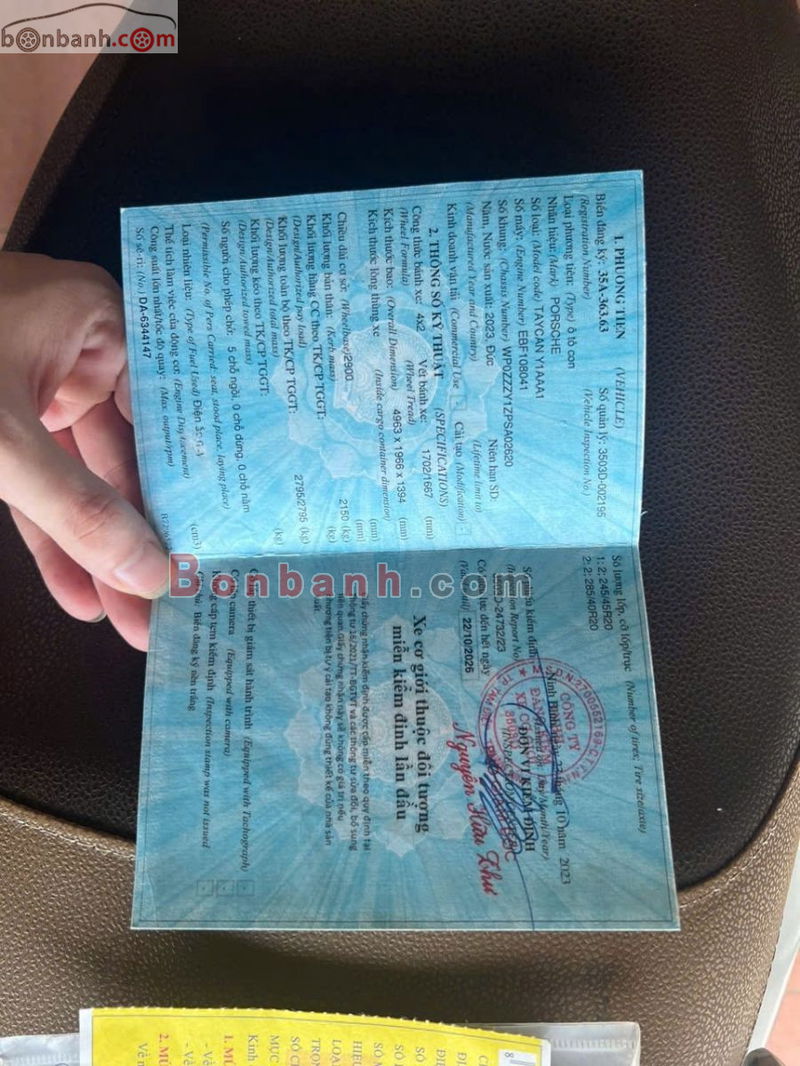 bonbanh.com
1. PHƯƠNG TIỆN (VEHICLE)
Biển đăng ký: 35A-363.63 Số quản lý: 3503D-002195
(Registration Number) (Vehicle Inspection No.)
Loại phương tiện: (Type) ô tô con
Nhãn hiệu: (Mark) PORSCHE
Số loại: (Model code) TAYCAN Y1AAA1
Số máy: (Engine Number) EBF108041
Số khung: (Chassis Number) WP0ZZZY1ZPSA02620
Năm, Nước sản xuất: 2023, Đức Niên hạn SD:
(Manufactured Year and Country) (Lifetime limit to)
Kinh doanh vận tải (Commercial Use) Cải tạo (Modification)
2. THÔNG SỐ KỸ THUẬT (SPECIFICATIONS)
Công thức bánh xe: 4x2 Vết bánh xe: 1702/1667 (mm)
(Wheel Formula) (Wheel Tread)
Kích thước bao: (Overall Dimension) 4963 x 1966 x 1394 (mm)
Kích thước lòng thùng xe (Inside cargo container dimension) (mm)
Chiều dài cơ sở: (Wheelbase) 2900 (mm)
Khối lượng bản thân: (Kerb mass) 2150 (kg)
Khối lượng hàng CC theo TK/CP TGGT: (kg)
(Design/Authorized pay load)
Khối lượng toàn bộ theo TK/CP TGGT: 2795/2795 (kg)
(Design/Authorized total mass)
Khối lượng kéo theo TK/CP TGGT: (kg)
(Design/Authorized towed mass)
Số người cho phép chở: 5 chỗ ngồi, 0 chỗ đứng, 0 chỗ nằm
(Permissible No. of Pers Carried: seat, stood place, laying place)
Loại nhiên liệu: (Type of Fuel Used) Điện
Thể tích làm việc của động cơ: (Engine Displacement) (cm3)
Công suất lớn nhất/tốc độ quay: (Max. output/rpm)
Số sê-ri: (No.) DA-6344147
Số lượng lốp, cỡ lốp/trục (Number of tires; Tire size/axle)
1: 2; 245/45R20
2: 2; 285/40R20
(Inspection Report No.)
24732/23
22/10/2026
10 năm 2023
(Day/Month/Year)
ĐƠN VỊ KIỂM ĐỊNH
M.S.D.N:2700662169-C.T.
CÔNG TY
Nguyễn Hữu Thư
Xe cơ giới thuộc đối tượng
miễn kiểm định lần đầu
Giấy chứng nhận kiểm định được cấp miễn theo quy định tại
Thông tư 16/2021/TT-BGTVT và các thông tư sửa đổi, bổ sung
liên quan. Giấy chứng nhận này sẽ không có giá trị nếu
phương tiện bị tự ý cải tạo không đúng thiết kế của nhà sản
xuất
Có thiết bị giám sát hành trình (Equipped with Tachograph)
camera (Equipped with camera)
Không cấp tem kiểm định (Inspection stamp was not issued)
Ghi chú: Biển đăng ký nền trắng
Bonbanh.com